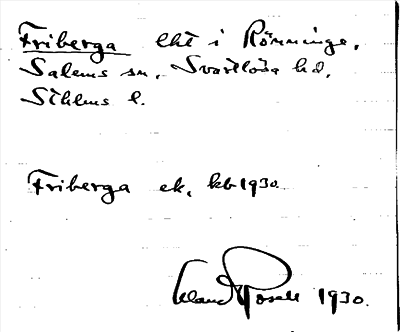 Friberga lht i Rönninge,
Salems sn, Svartlösa hd,
Sthlms l.
Friberga ek, kb 1930
Erland Rosell 1930.